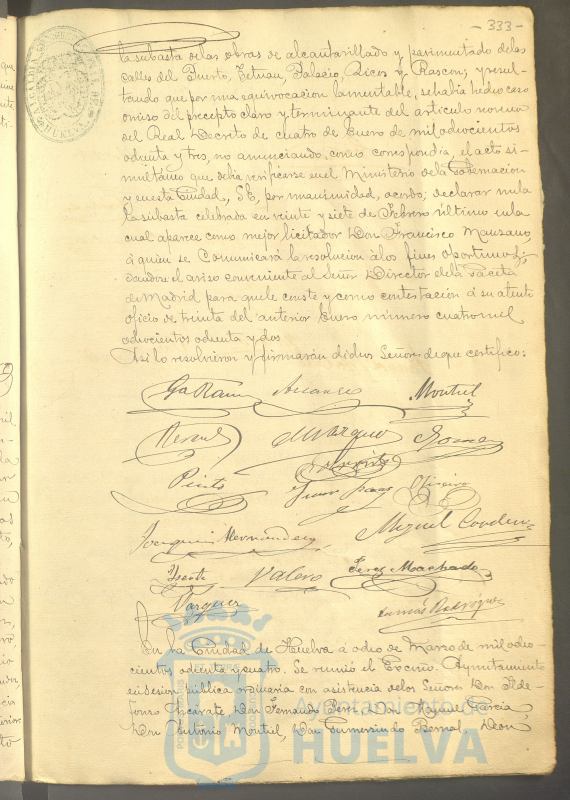 - 333 -
la subasta de las obras de alcantarillado y pavimentado de las
calles del Puerto, Tetuan, Palacio, Ricos y Rascon; y resul-
tando que por una equivocacion lamentable, se habia hecho caso
omiso del precepto claro y terminante del articulo noveno
del Real Decreto de cuatro de Enero de mil ochocientos
ochenta y tres, no anunciando, como correspondia, el acto si-
multáneo que debia verificarse en el Ministerio de la Gobernacion
y en esta Ciudad, S.E. por unanimidad, acordó; declarar nula
la subasta celebrada en veinte y siete de Febrero último en la
cual aparece como mejor licitador Don Francisco Manzano,
á quien se Comunicará la resolucion á los fines oportunos;
dandose el aviso conveniente al Señor Director de la Gaceta
de Madrid para que le conste y como contestacion á su atento
oficio de treinta del anterior Enero número cuatro mil
ochocientos ochenta y dos
Asi lo resolvieron y firmarán dichos Señores de que certifico:
Garcia Montiel
Bernal Marquez
Pinto
Joaquin Hernandez Miguel
Vicente Valero Perez Machado
Vazquez Tomás Rodriguez
En la Ciudad de Huelva á ocho de Marzo de mil ocho-
cientos ochenta y cuatro. Se reunió el Excmo. Ayuntamiento
en sesion pública ordinaria con asistencia de los Señores Don Ilde-
fonso Ascarate, Don Fernando Don Miguel Garcia,
Don Antonio Montiel, Don Gumersindo Bernal, Don
Ayuntamiento de
HUELVA